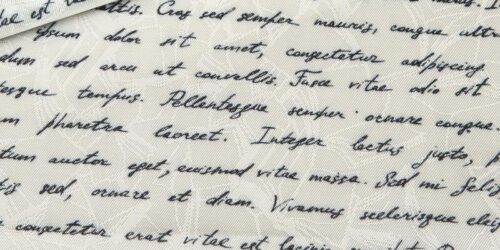 dae est
ttis. Cras sed semper mauris, congue ultr
ipsum dolor sit amet, consectetur adipiscing
dum sed arcu at convallis. Fusce vitae odio sit
tesque tempus. Pellentesque semper ornare congue.
um pharetra laoreet. Integer lactus justo, p
tum auctor eget, euismod vitae massa. Sed mi felis
tis sed, ornare et diam. Vivamus scelerisque eleif
consectetur erat vitae est lacinia